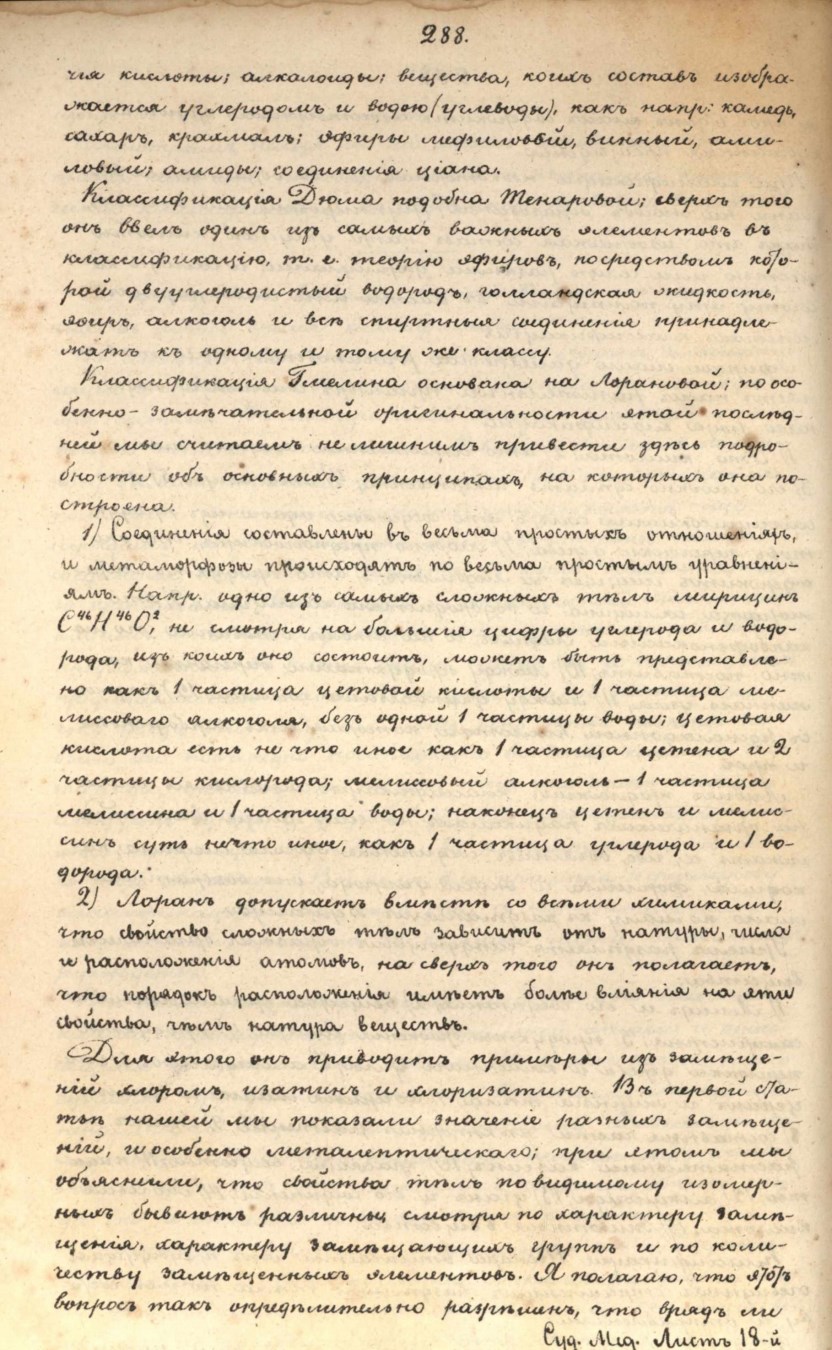 288.
чія кислоты; алкалоиды; вещества, коихъ составъ изобра-
жается углеродомъ и водою (углеводы), какъ напр: камедь,
сахаръ, крахмалъ; эфиры мефиловый, винный, ами-
ловый; амиды; соединенія ціана.
Классификація Дюма подобна Тенаровой; сверхъ того
онъ ввелъ одинъ изъ самыхъ важныхъ элементовъ въ
классификацію, т. е. теорію эфировъ, посредствомъ кото-
рой двууглеродистый водородъ, голландская жидкость,
эфиръ, алкоголь и всѣ спиртныя соединенія принадле-
жатъ къ одному и тому же классу.
Классификація Гмелина основана на Лорановой; по осо-
бенно-замѣчательной оригинальности этой послѣд-
ней мы считаемъ не лишнимъ привести здѣсь подро-
бности объ основныхъ принципахъ, на которыхъ она по-
строена.
1) Соединенія составлены въ весьма простыхъ отношеніяхъ,
и метаморфозы происходятъ по весьма простымъ уравнені-
ямъ. Напр. одно изъ самыхъ сложныхъ тѣлъ мирицинъ
C⁴⁶H⁴⁶O², не смотря на большія цифры углерода и водо-
рода, изъ коихъ оно состоитъ, можетъ быть представле-
но какъ 1 частица цетовой кислоты и 1 частица ме-
лиссоваго алкоголя, безъ одной 1 частицы воды; цетовая
кислота есть не что иное какъ 1 частица цетена и 2
частицы кислорода; мелиссовый алкоголь — 1 частица
мелиссина и 1 частица воды; наконецъ цетенъ и мелис-
синъ суть нечто иное, какъ 1 частица углерода и 1 во-
дорода.
2) Лоранъ допускаетъ вмѣстѣ со всѣми химиками,
что свойство сложныхъ тѣлъ зависитъ отъ натуры, числа
и расположенія атомовъ, на сверхъ того онъ полагаетъ,
что порядокъ расположенія имѣетъ болѣе вліянія на эти
свойства, чѣмъ натура веществъ.
Для этого онъ приводитъ примѣры изъ замѣще-
ній хлоромъ, изатинъ и хлоризатинъ. Въ первой ста-
тьѣ нашей мы показали значеніе разныхъ замѣще-
ній, и особенно металептическаго; при этомъ мы
объяснили, что свойства тѣлъ по видимому изомер-
ныхъ бываютъ различны смотря по характеру замѣ-
щенія, характеру замѣщающихъ группъ и по коли-
честву замѣщенныхъ элементовъ. Я полагаю, что этотъ
вопросъ такъ опредѣлительно разрѣшенъ, что врядъ ли
Суд. Мед. Листъ 18-й